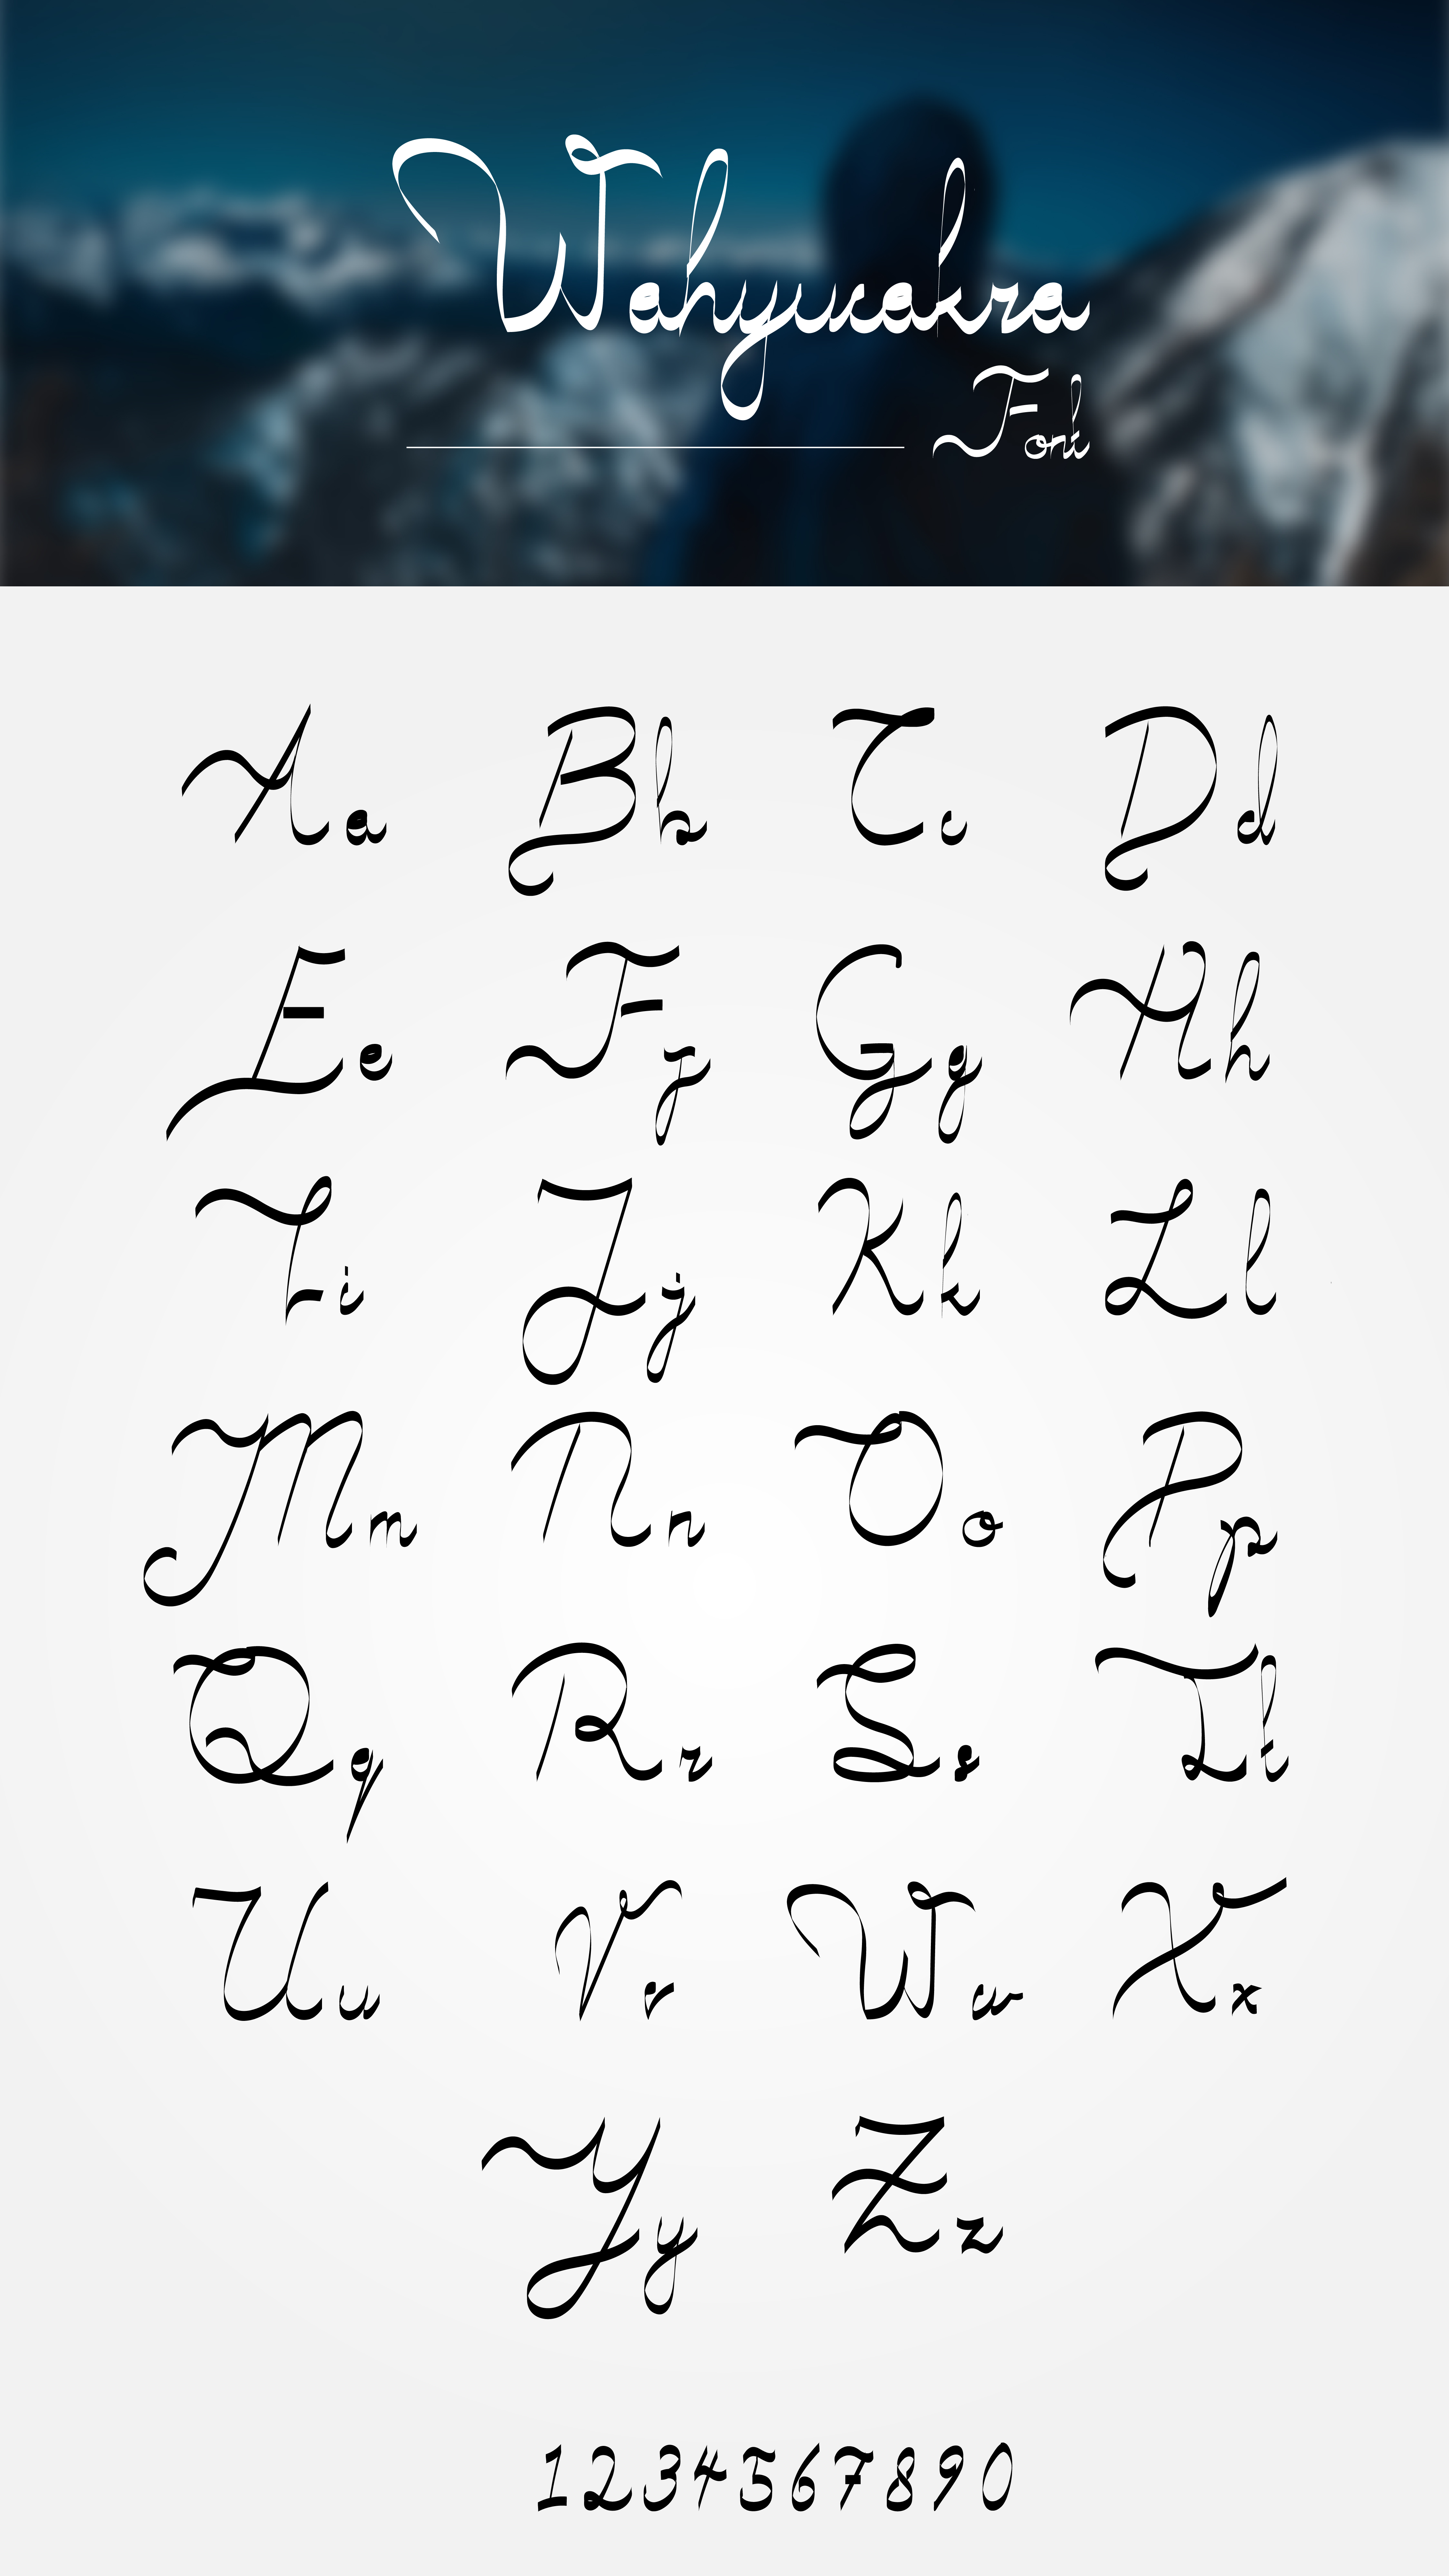 Wahyucakra
Font
Aa Bb Cc Dd
Ee Ff Gg Hh
Ii Jj Kk Ll
Mm Nn Oo Pp
Qq Rr Ss Tt
Uu Vv Ww Xx
Yy Zz
1234567890